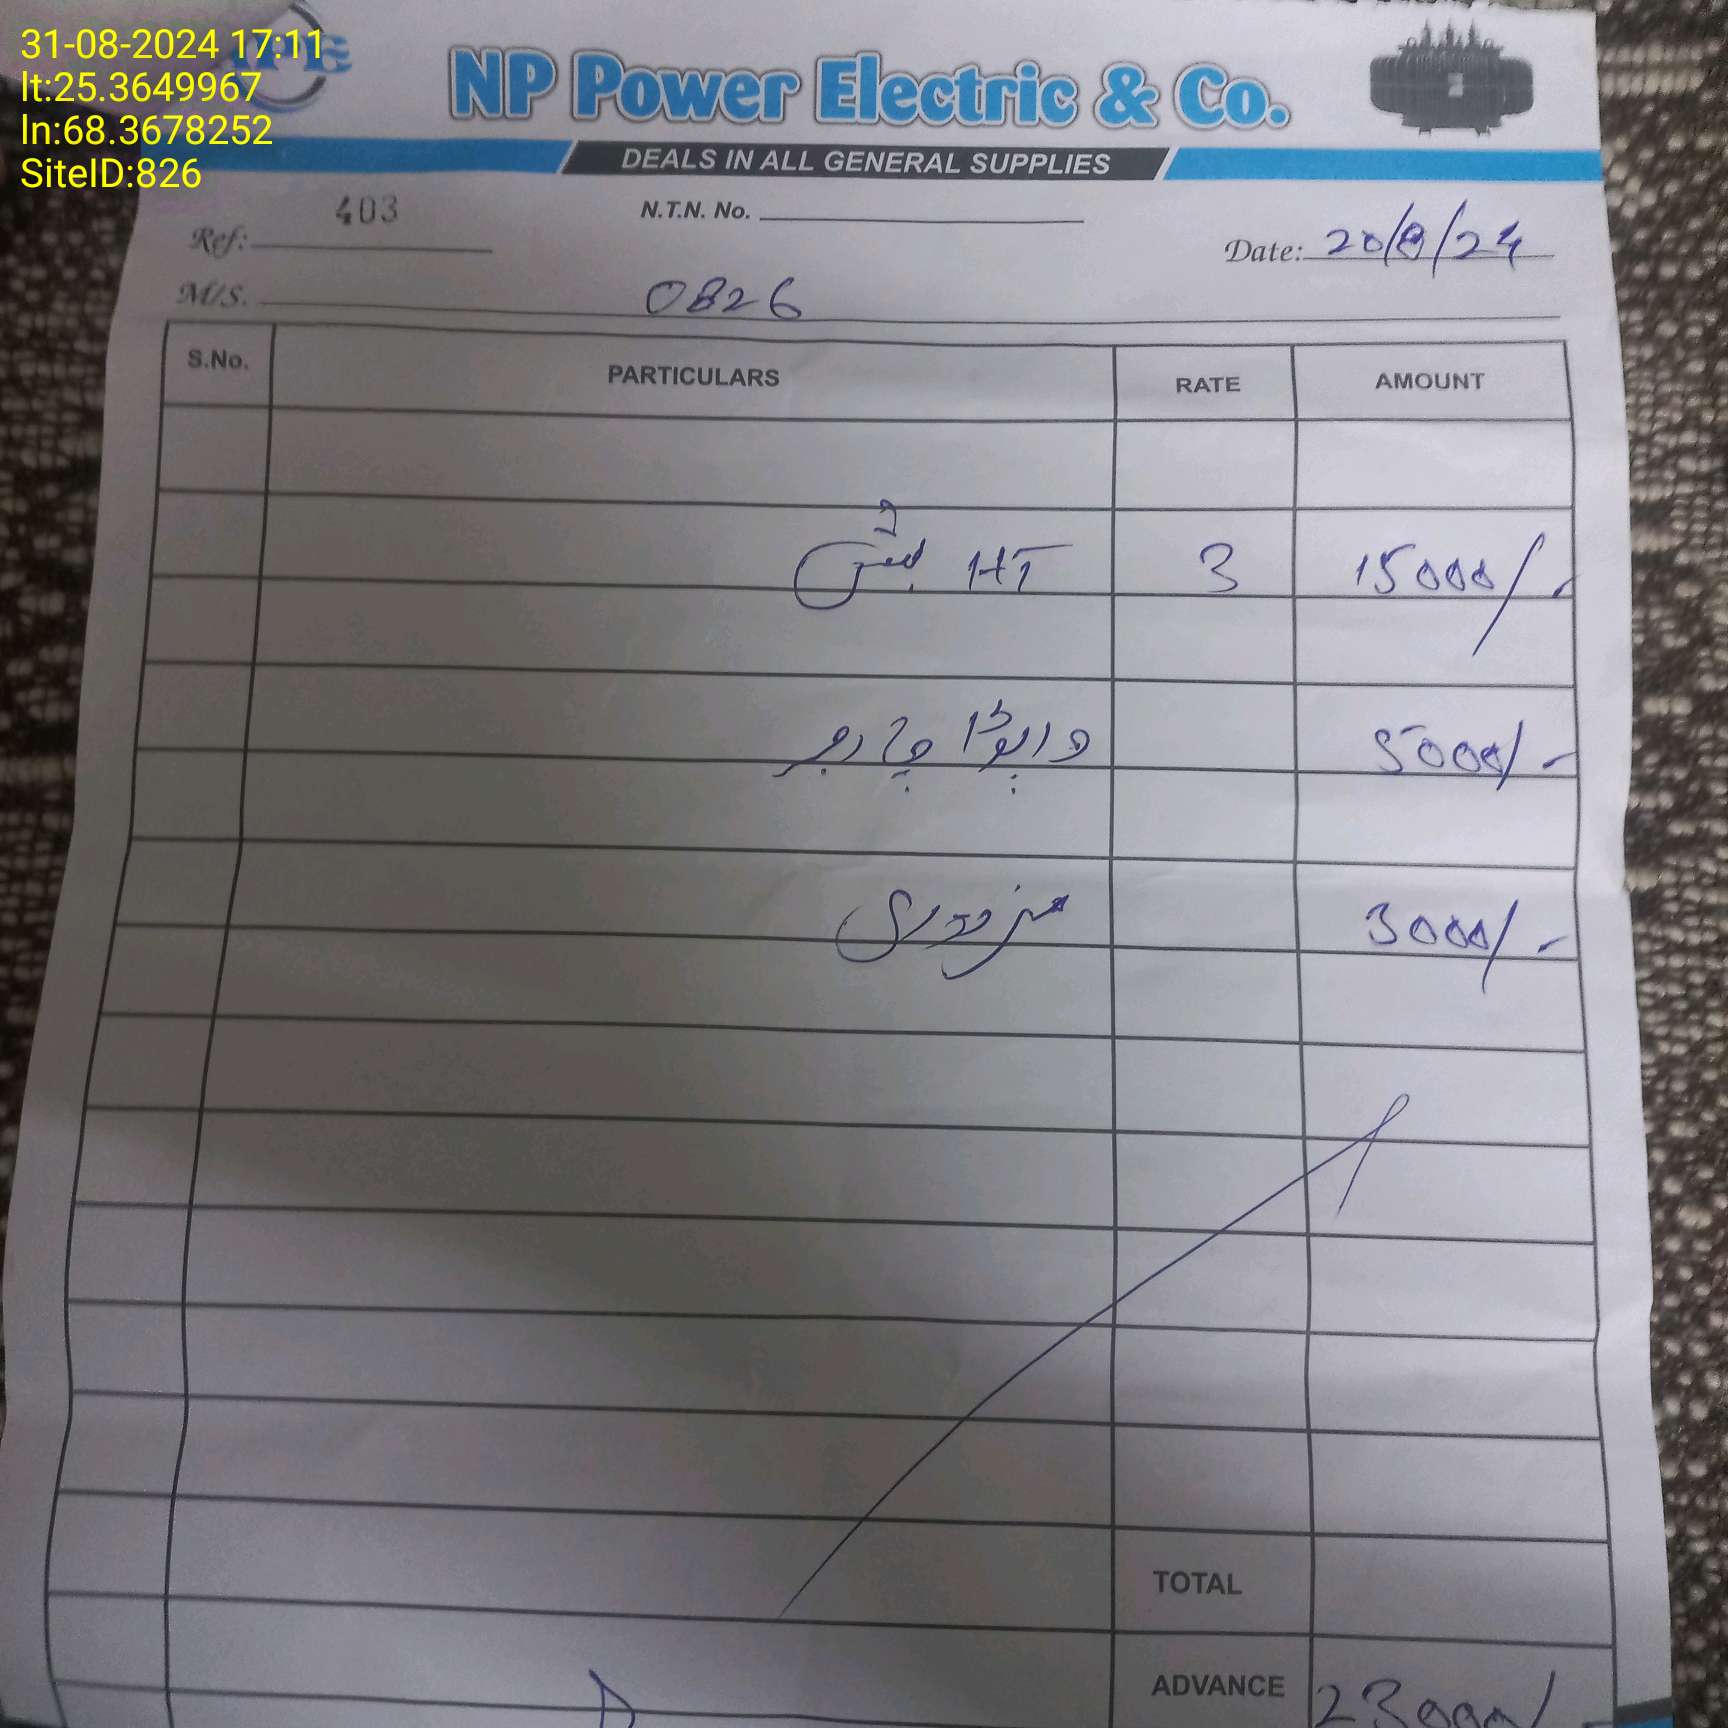 31-08-2024 17:11
lt:25.3649967
ln:68.3678252
SiteID:826
NP Power Electric & Co.
DEALS IN ALL GENERAL SUPPLIES
Ref: 403
N.T.N. No.
Date: 20/8/24
M/S. 0826
S.No. PARTICULARS RATE AMOUNT
HT بش 3 15000/-
واپڈا چارجز 5000/-
مزدوری 3000/-
TOTAL
ADVANCE 23000/